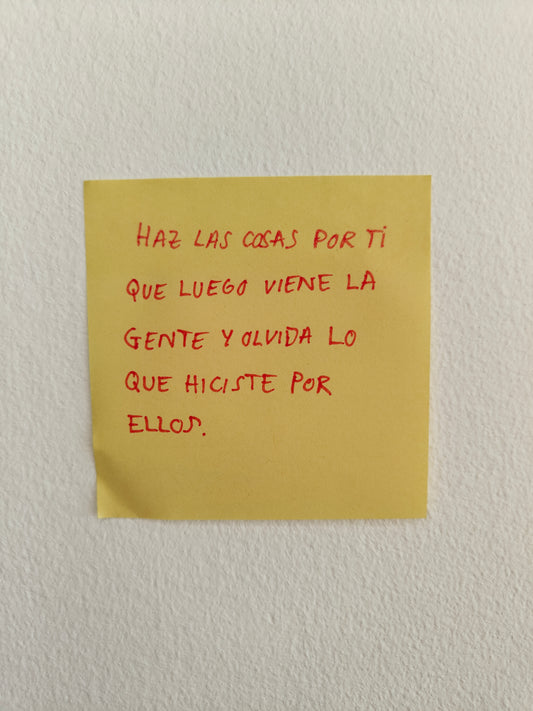 HAZ LAS COSAS POR TI
QUE LUEGO VIENE LA
GENTE Y OLVIDA LO
QUE HICISTE POR
ELLOS.